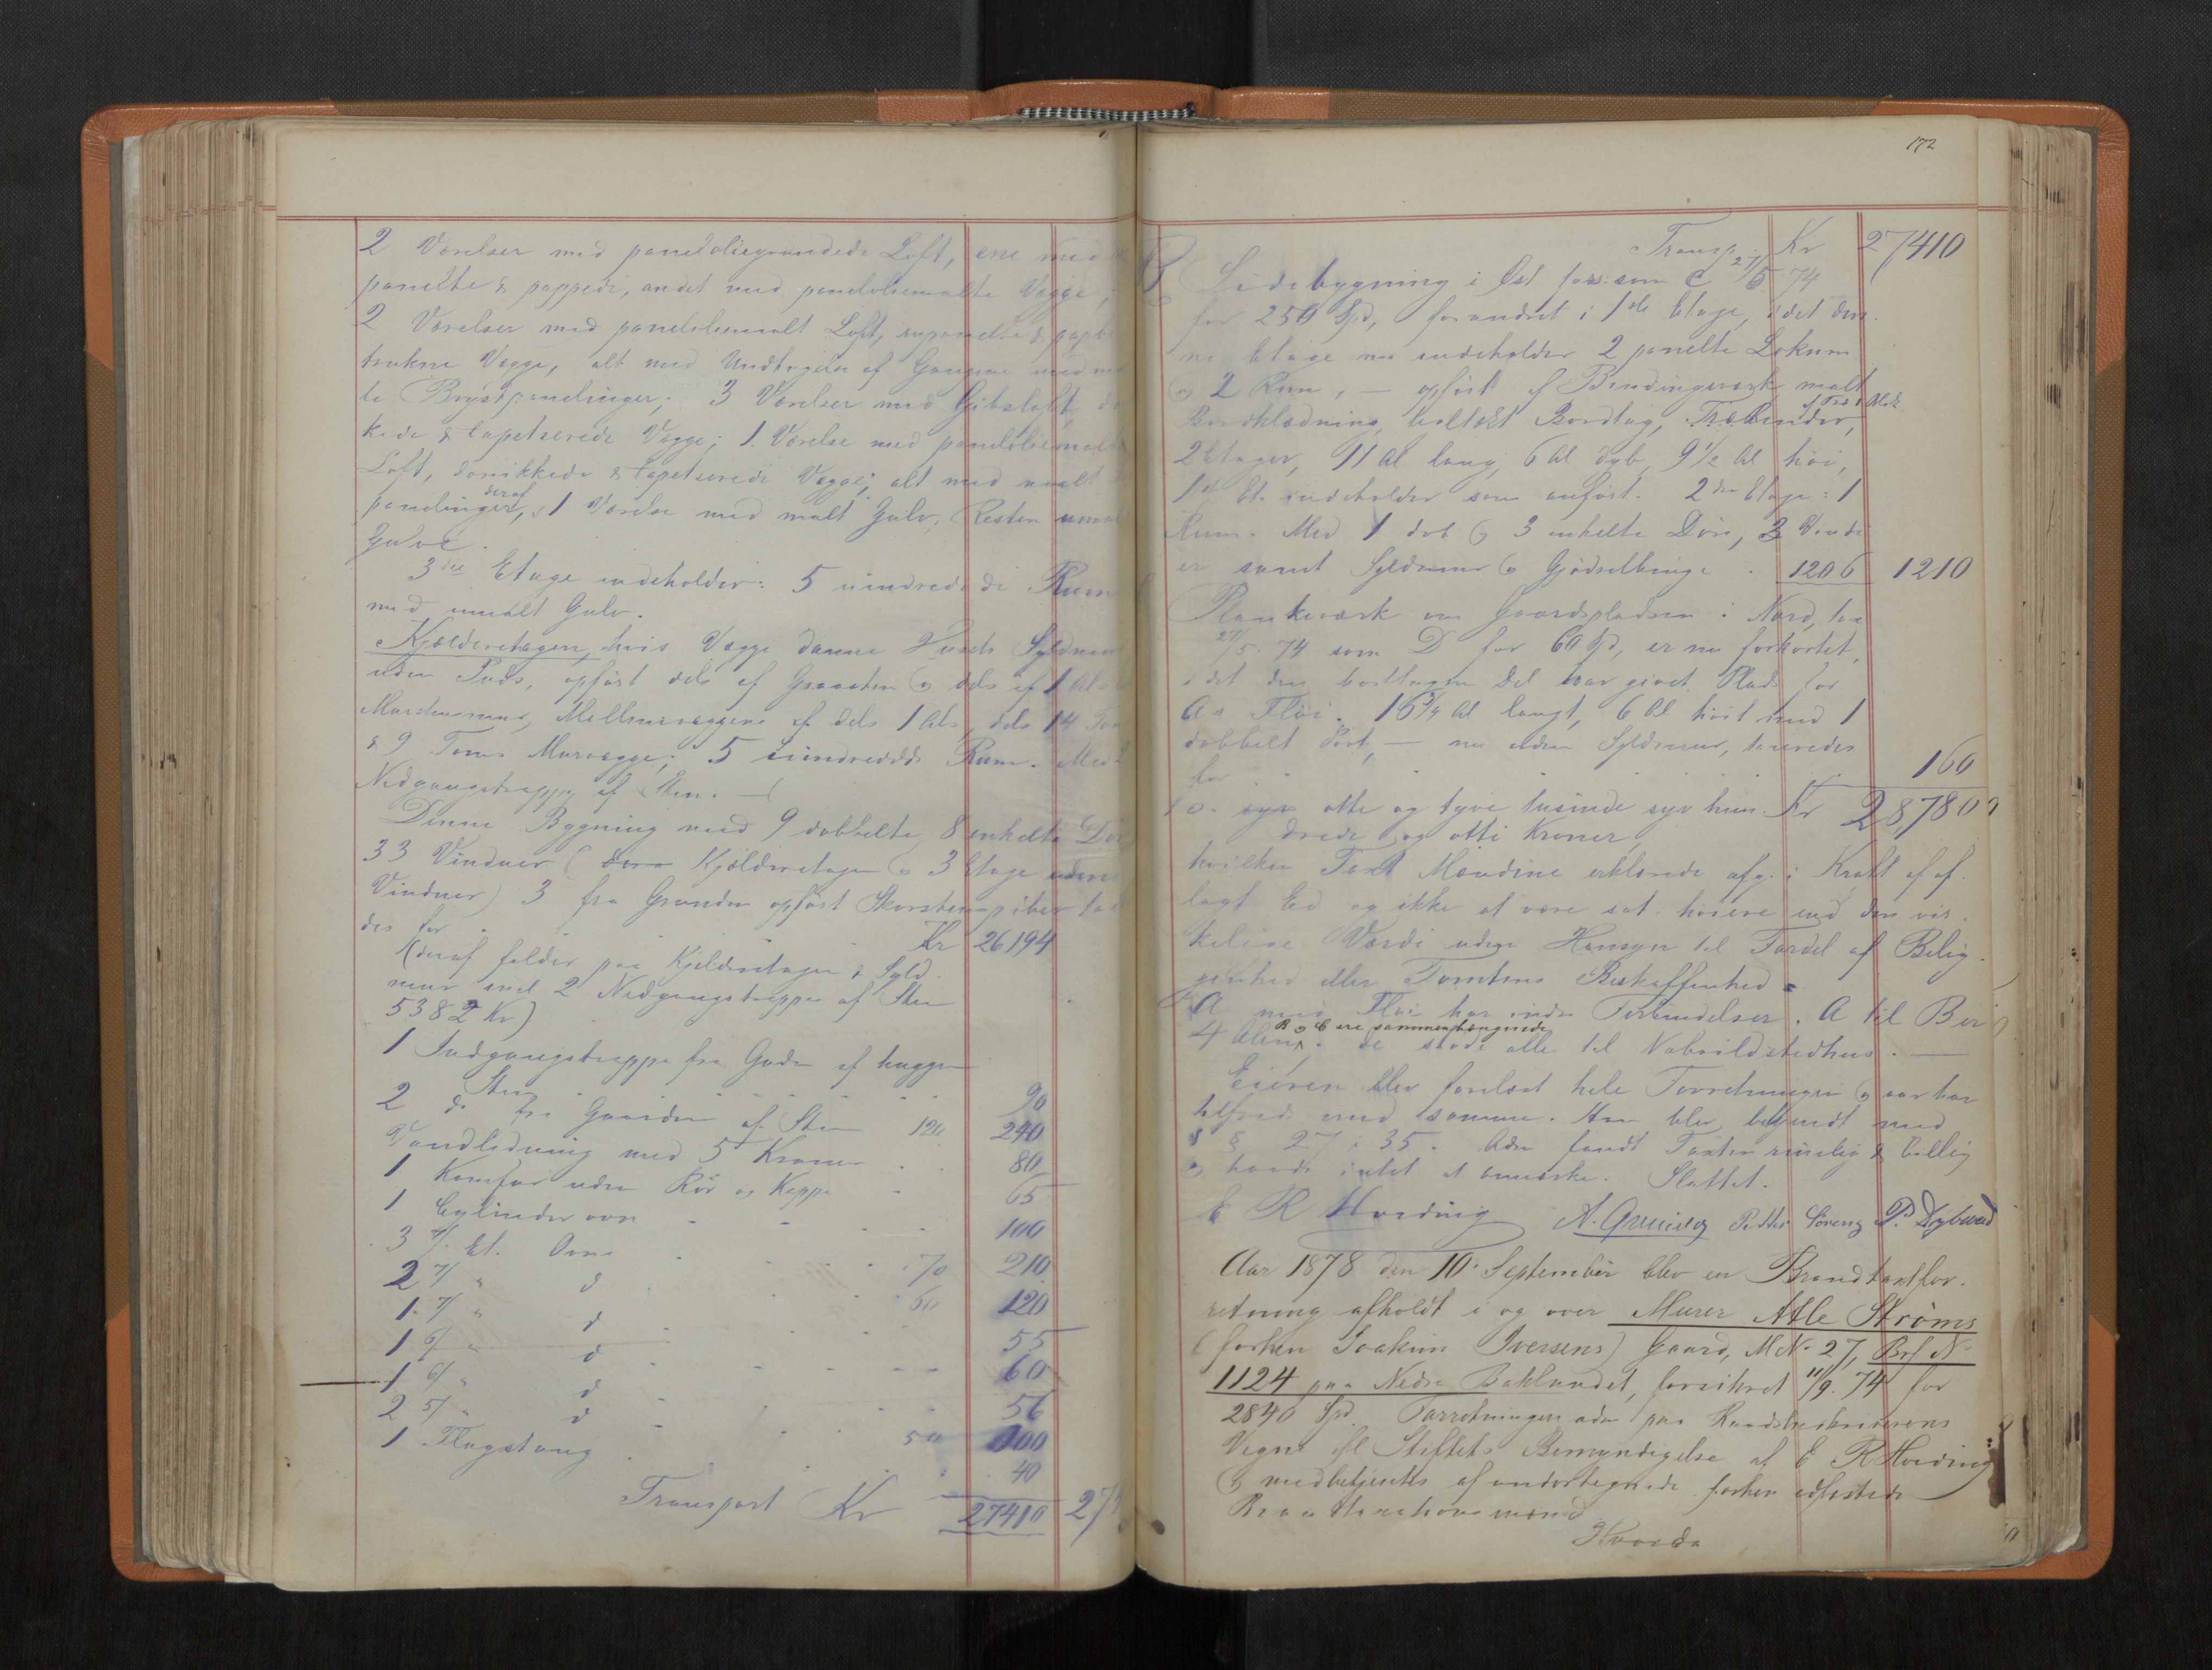 2 Værelser med paneloliegrundede Loft, ene med
panelte & pappede, andet med paneloliemalte Vægge;
2 Værelser med paneloliemalt Loft, &
trukne Vægge, alt med Undtagelse af Gangene med
te Brystpanelinger; 3 Værelser med Gibsloft,
kede & tapetserede Vægge; 1 Værelse med paneloliemalt
Loft, & tapetserede Vægge; alt med malt
panelinger, deraf 1 Værelse med malt Gulv, Resten umalt
Gulve.
3die Etage indeholder: 5 uindredede Rum
med umalt Gulv.
Kjælderetagen, hvis Vægge danne Husets Syldmur
uden Puds, opført dels af Graasten og dels af 1 Al
Murstensmur, Mellemvæggene af dels 1 Als, dels 14 Tom
& 9 Toms Murvægge; 5 uindredede Rum. Med
Nedgangstrappe af Sten. —
Denne Bygning med 9 dobbelte, 8 enkelte Dør
33 Vinduer ( Kjælderetagen og 3 Etage uden
Vinduer) 3 fra Grunden opført Skorstenspiber tax
des for Kr 26194
(deraf falder paa Kjelderetagen & Syld
mur incl 2 Nedgangstrapper af Sten
5382 Kr)
1 Indgangstrappe fra Gaden af huggen
Sten 90
2 do fra Gaarden af Sten 120 240
Vandledning med 5 Kraner 80
1 Komfur uden Rør og Kappe 65
1 Cylinderovn 100
3 4/ Et. Ovne 70 210
2 4/ " d 60 120
1 4/ " d 55
1 6/ " d 60
1 6/ " d 56
2 5/ " d 50 100
1 Flagstang 40
Transport Kr 27410 27
172
Transp. Kr 27410
B Sidebygning i Øst fors. som C 27/5 74
for 250 Spd, forandret i 1ste Etage, idet den
ne Etage nu indeholder 2 panelte Lokum
og 2 Rum, — opført af Bindingsværk malt
Bordklædning, Bordtag, Trærender,
2 Etager, 11 Al lang, 6 Al dyb, 9 1/2 Al høi,
1st Et. indeholder som anført. 2den Etage: 1
Rum. Med 1 dob og 3 enkelte Døre, 3 Vindu
er samt Syldmur og Gjødselbinge 1206 1210
Plankeværk om Gaardspladsen i Nord, tax
27/5. 74 som D for 60 Spd, er nu forkortet,
idet den borttagne Del har givet Plads for
As Fløi. 16 3/4 Al langt, 6 Al høit med 1
dobbelt Port, — nu uden Syldmur, taxeredes
for 160
otte og tyve tusinde syv hun- Kr 28780
drede og otti Kroner,
hvilken Taxt Mændene erklærede afg. i Kraft af af-
lagt Ed og ikke at være sat høiere end den vir-
kelige Værdi uden Hensyn til Fordel af Belig-
genhed eller Tomtens Beskaffenhed.
A med Fløi har indre Forbindelser. A til B er
4 Alen, B og C ere sammenhængende de støde alle til Nabo
Eieren blev forelæst hele Forretningen og var
tilfreds med samme. Han blev bekjendt med
§ § 27 & 35. Adm fandt Taxten rimelig & billig
og havde intet at anmærke. Sluttet.
E R Hveding A. Petter Sørens P. Dybwad
Aar 1878 den 10. September blev en Brandtaxtfor-
retning afholdt i og over Murer Atle Strøms
(forhen Joakim Iversens) Gaard, MNo 27, Brf No
1124 paa Nedre Baklandet, forsikret 11/9. 74 for
2840 Spd. Forretningen adm paa Raadstueskriverens
Vegne ifl Stiftets Bemyndigelse af E R Hveding
og medbetjentes af undertegnede forhen edfæstede
Brandtaxationsmænd